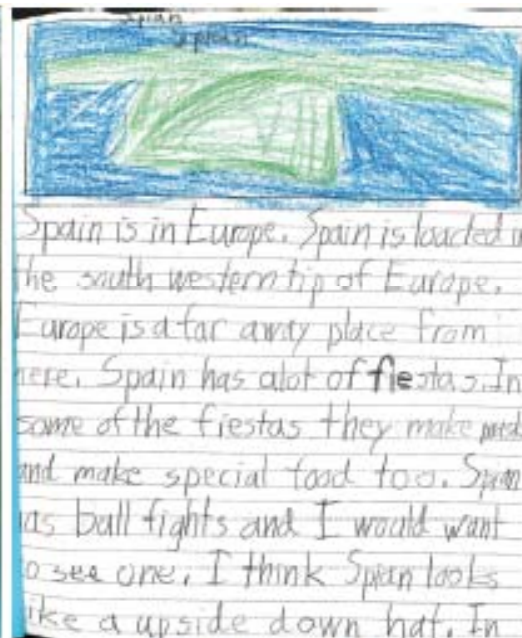 Spian
Spian
Spain is in Europe. Spain is loacted i
the south western tip of Europe.
Europe is a far away place from
here. Spain has alot of fiestas. In
some of the fiestas they make
and make special food too. Spian
has ball fights and I would want
to see one. I think Spian looks
like a upside down hat. In